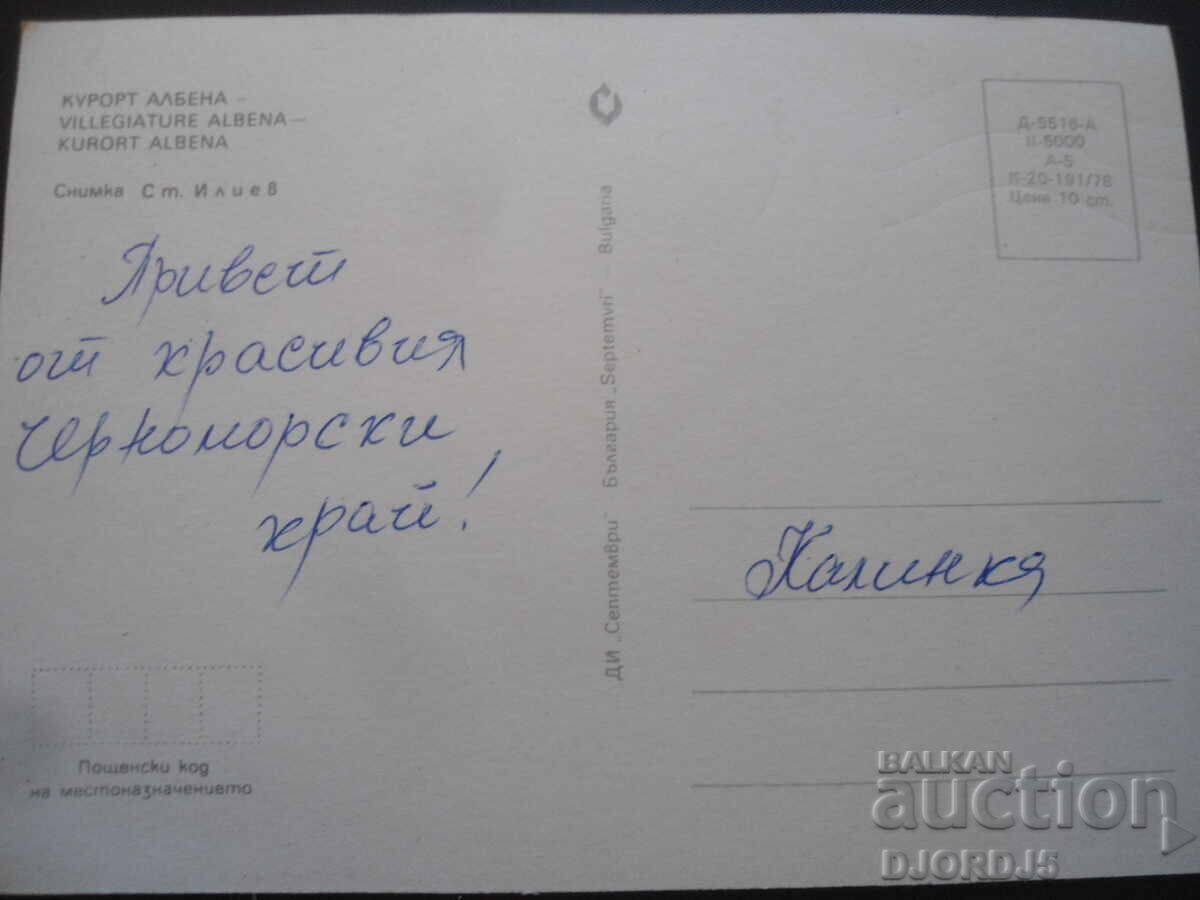 КУРОРТ АЛБЕНА –
VILLEGIATURE ALBENA –
KURORT ALBENA
Снимка Ст. Илиев
Привет
от красивия
Черноморски
край!
Пощенски код
на местоназначението
ДИ „Септември" България „Septemvri" – Bulgaria
Д-5516-А
II-5000
А-5
К-20-191/78
Цена 10 ст.
Калинка
BALKAN
auction
DJORDJ5